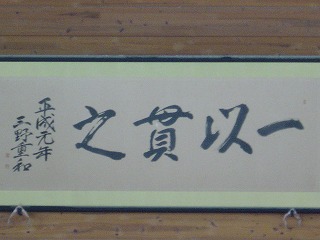 一以貫之
平成元年
三野重和